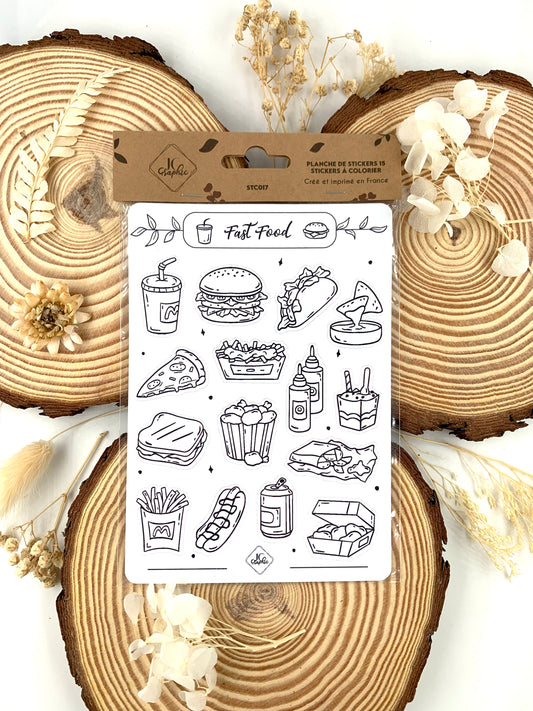 JC
Graphic
STC017
PLANCHE DE STICKERS 15
STICKERS À COLORIER
Créé et imprimé en France
Fast Food
JC
Graphic